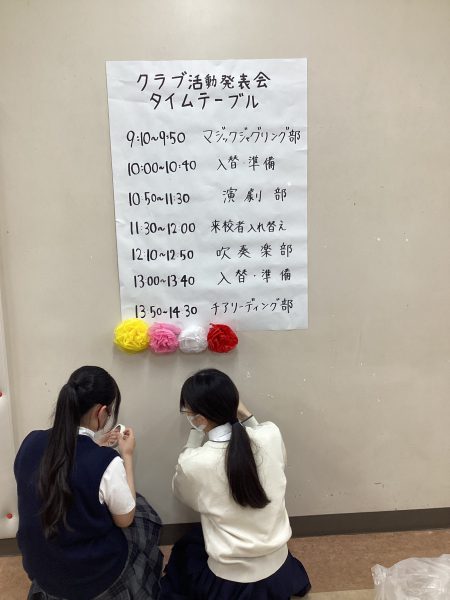 クラブ活動発表会
タイムテーブル
9:10~9:50 マジックジャグリング部
10:00~10:40 入替・準備
10:50~11:30 演劇部
11:30~12:00 来校者入れ替え
12:10~12:50 吹奏楽部
13:00~13:40 入替・準備
13:50~14:30 チアリーディング部